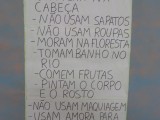 CABEÇA
-NÃO USAM SAPATOS
-NÃO USAM ROUPAS
-MORAM NA FLORESTA
-TOMAM BANHO NO
RIO
-COMEM FRUTAS
-PINTAM O CORPO
E O ROSTO
-NÃO USAM MAQUIAGEM
USAM AMORA PARA